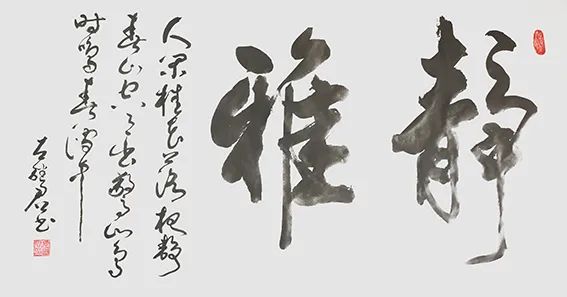 静雅
人闲桂花落夜静
春山空月出惊山鸟
时鸣春涧中
书